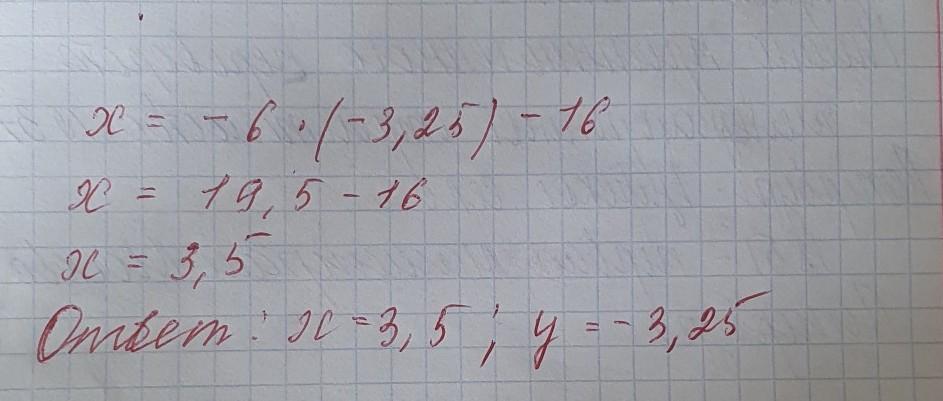 x = - 6 · (-3,25) - 16
x = 19,5 - 16
x = 3,5
Ответ: x = 3,5; y = - 3,25